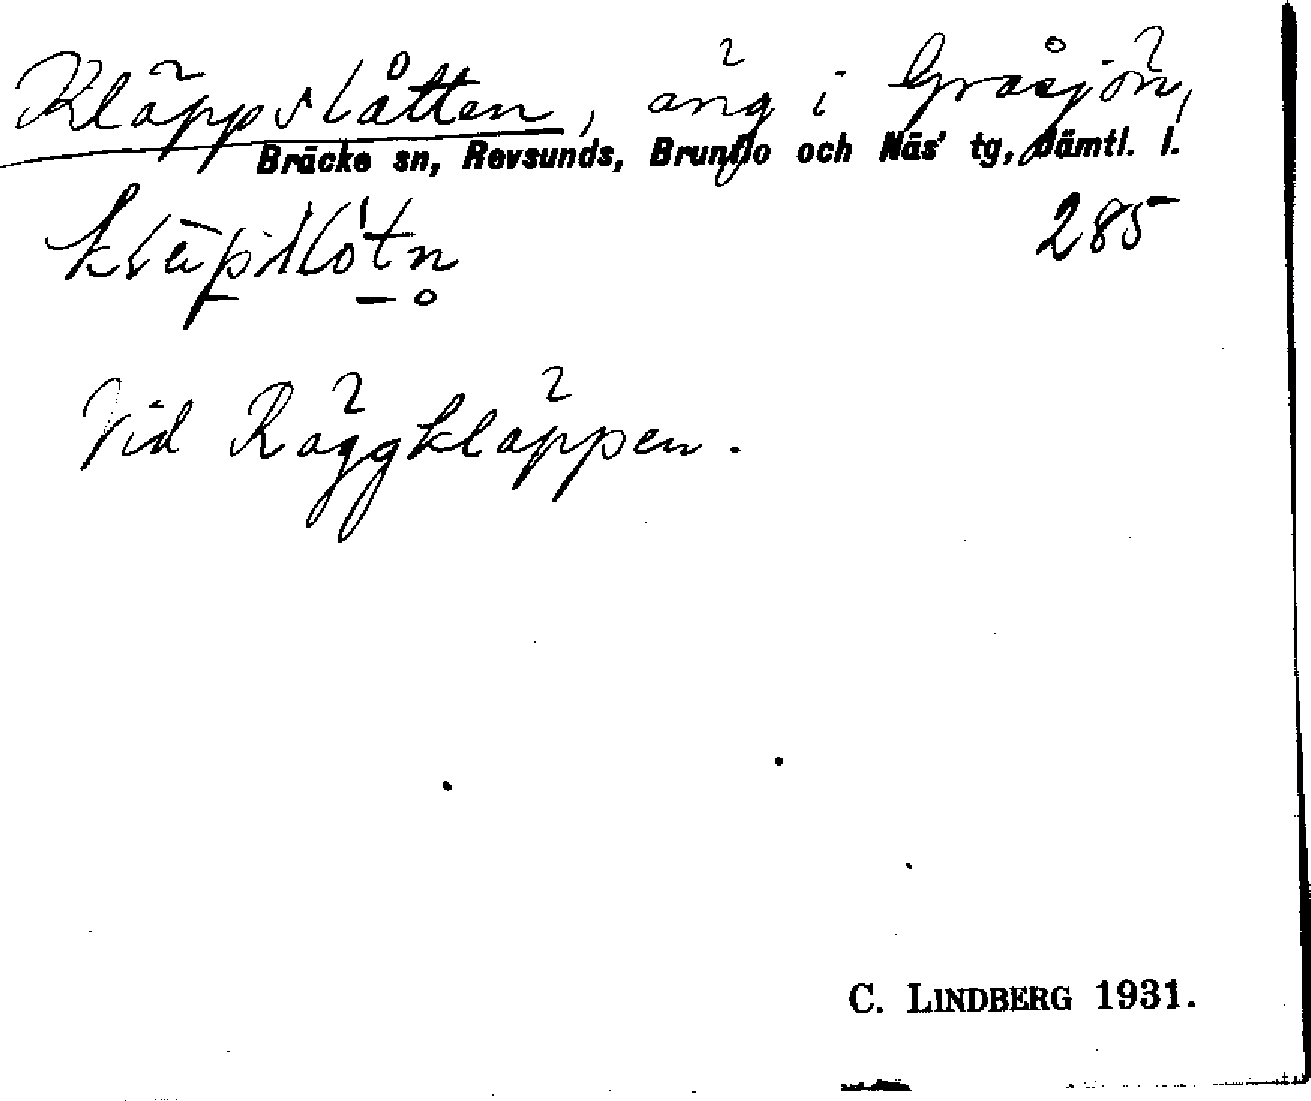 Kläppslåtten, äng i Gråsjön,
Bräcke sn, Revsunds, Brunflo och Näs' tg, Jämtl. l.
285
Vid Räggkläppen.
C. LINDBERG 1931.